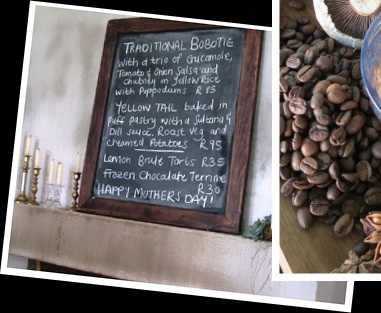 TRADITIONAL BOBOTIE
With a trio of Guacamole,
Tomato & Onion Salsa and
Chutney in Yellow Rice
with Poppodums R 85
YELLOW TAIL baked in
Puff pastry with a Sultana &
Dill sauce, Roast Veg and
creamed Potatoes R 95
Lemon Brule Tarts R35
Frozen Chocolate Terrine
R30
HAPPY MOTHERS DAY!